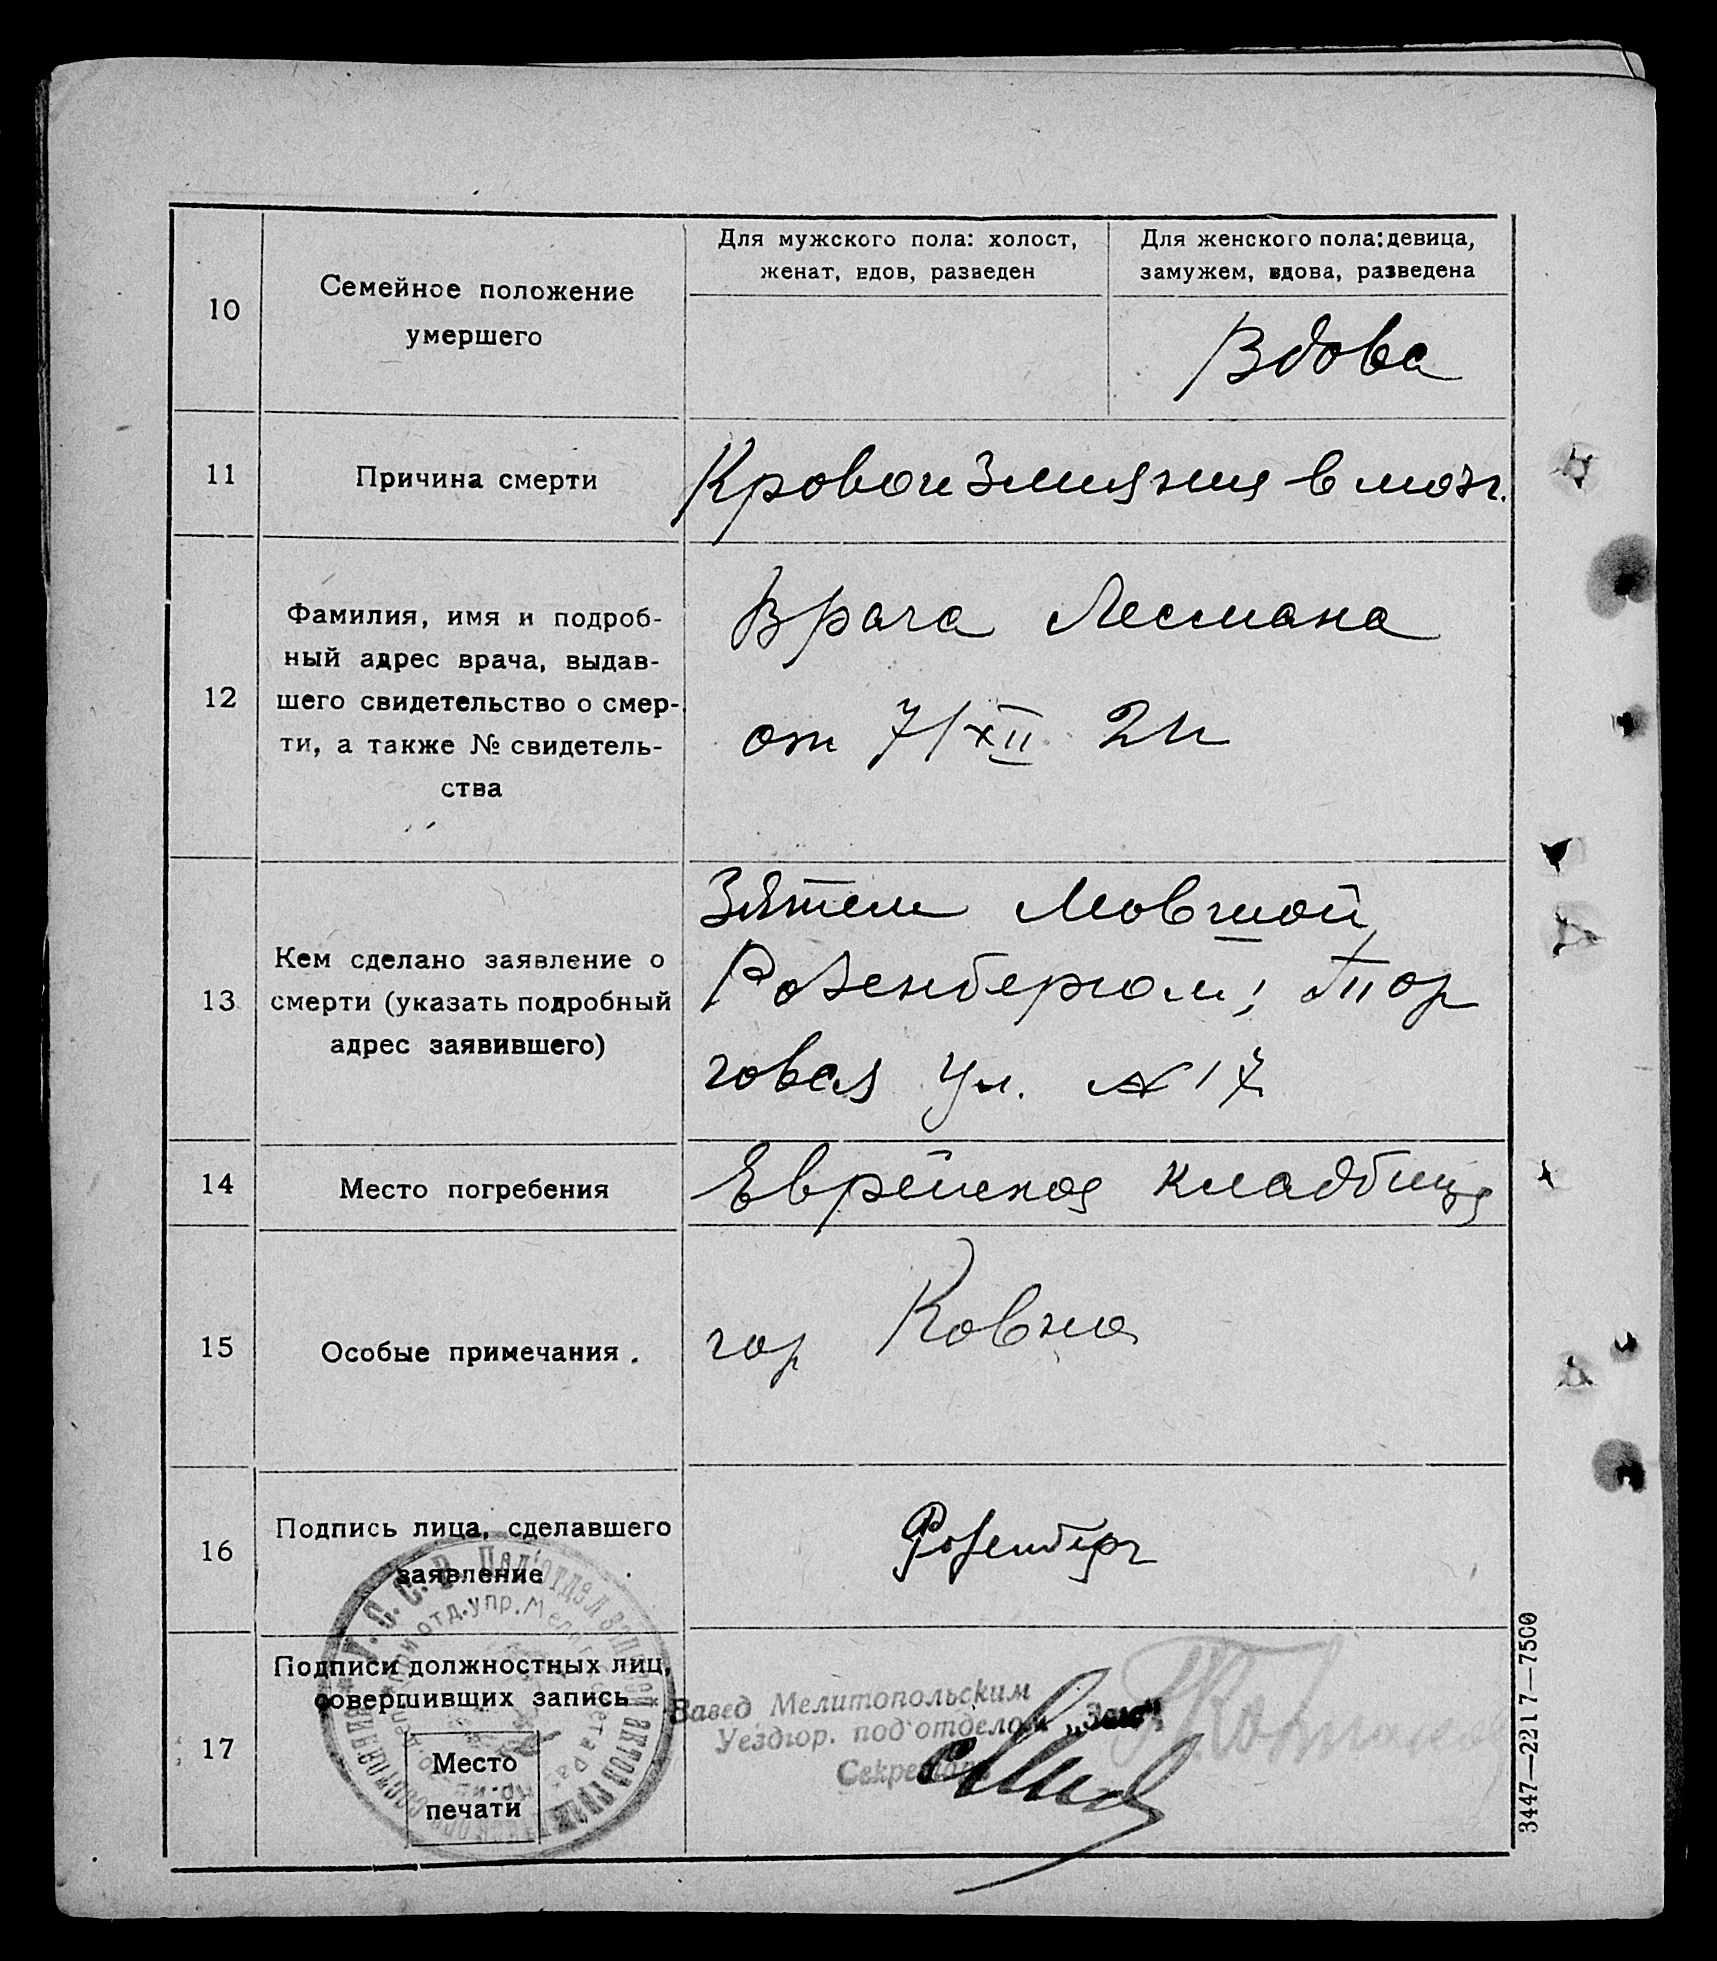 10
Семейное положение
умершего
Для мужского пола: холост,
женат, вдов, разведен
Для женского пола: девица,
замужем, вдова, разведена
Вдова
11
Причина смерти
Кровоизлияния в мозг.
12
Фамилия, имя и подроб-
ный адрес врача, выдав-
шего свидетельство о смер-
ти, а также № свидетель-
ства
Врача Лесмана
от 7/XII
13
Кем сделано заявление о
смерти (указать подробный
адрес заявившего)
Зятем Мовшой
Розенбергом, Тор
говая ул. № 17
14
Место погребения
Еврейское кладбище
15
Особые примечания.
гор Ковно
16
Подпись лица, сделавшего
заявление
Розенберг
17
Подписи должностных лиц,
совершивших запись
Место
печати
Завед Мелитопольским
Уездгор. под'отделом „Загс"
Секретарь
У. С. С. Р. Под'отдел записей актов граж
состояния
3447—2217—7500